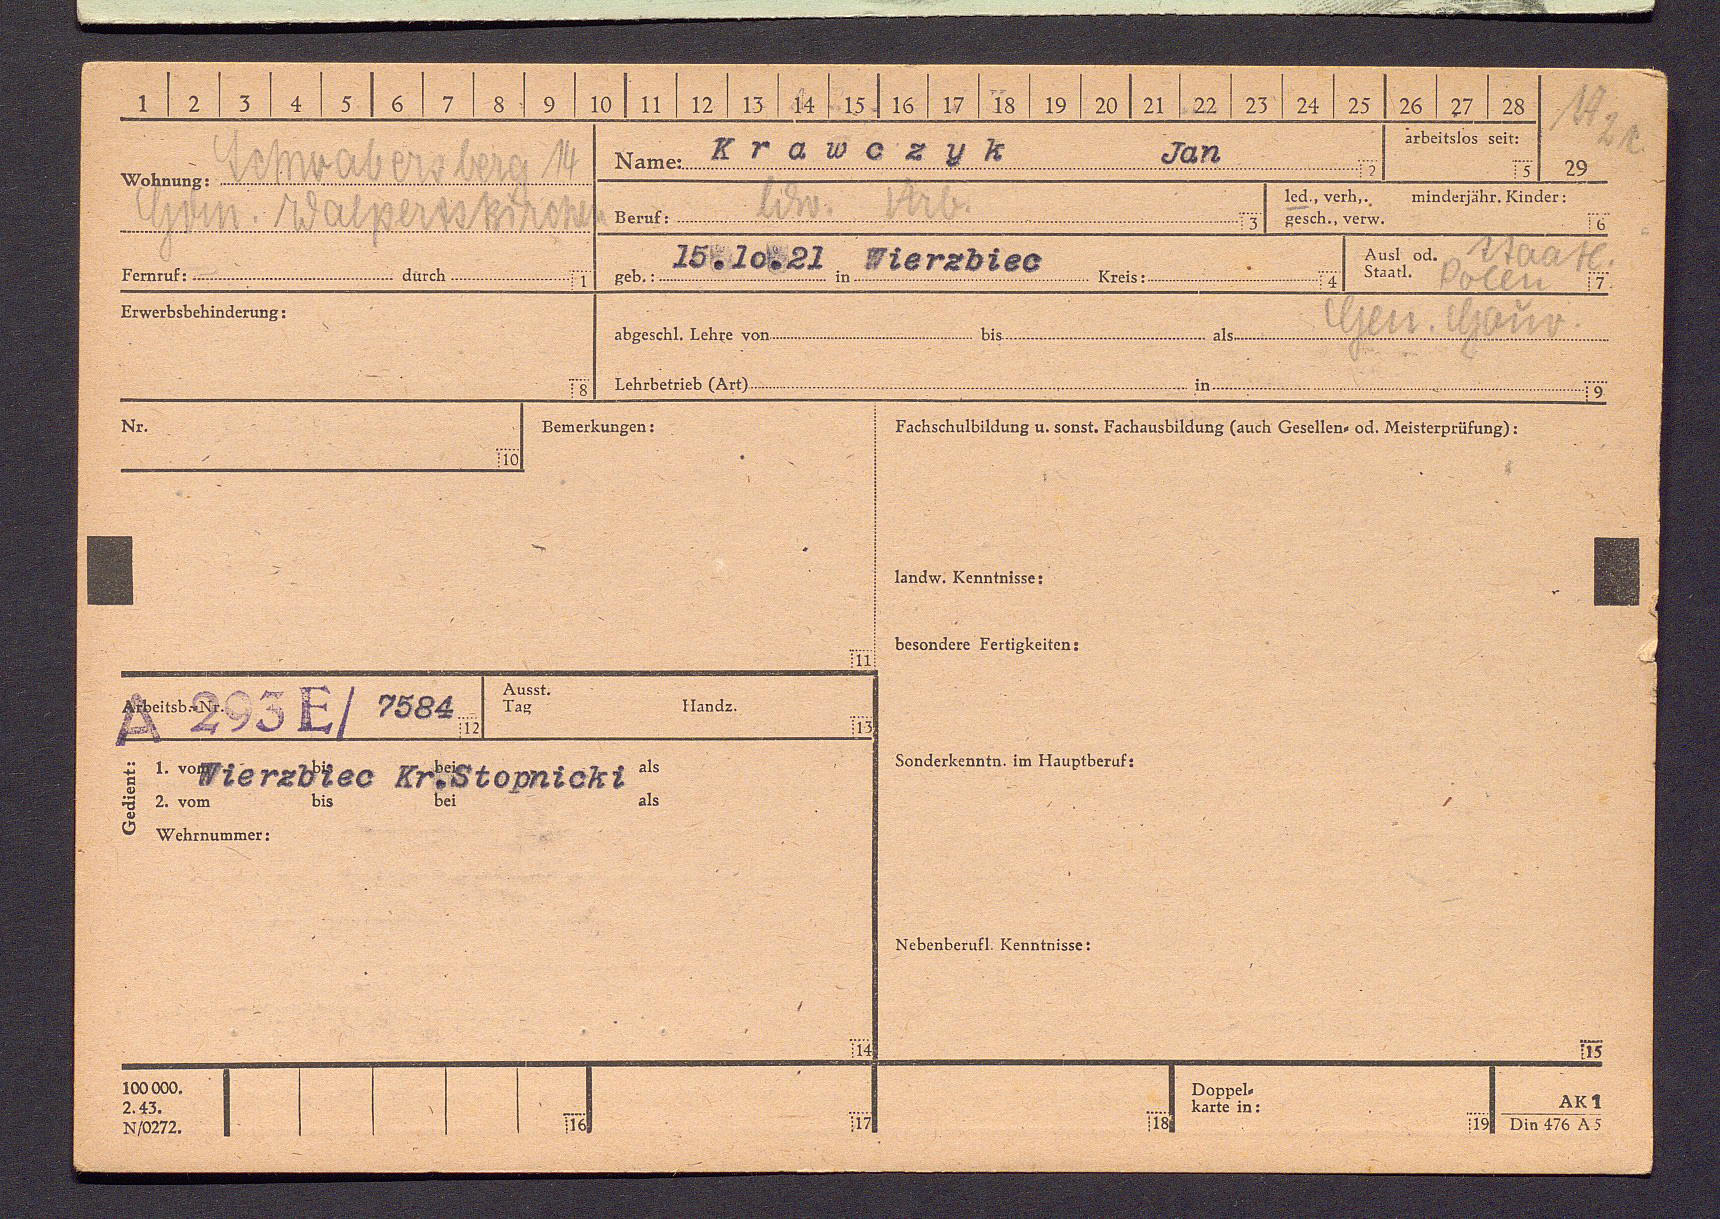 1 2 3 4 5 6 7 8 9 10 11 12 13 14 15 16 17 18 19 20 21 22 23 24 25 26 27 28
Wohnung: Schwabersberg 14
Gem. Walpertskirchen
Fernruf: durch 1
Name: Krawczyk Jan 2
arbeitslos seit: 5
29
Beruf: ldw. Arb. 3
led., verh., minderjähr. Kinder:
gesch., verw. 6
geb.: 15.10.21 in Wierzbiec Kreis: 4
Ausl od. Staatl.
Staatl. Polen 7
Gen. Gouv.
Erwerbsbehinderung:
8
abgeschl. Lehre von bis als
Lehrbetrieb (Art) in 9
Nr.
10
Bemerkungen:
11
Fachschulbildung u. sonst. Fachausbildung (auch Gesellen- od. Meisterprüfung):
landw. Kenntnisse:
besondere Fertigkeiten:
Sonderkenntn. im Hauptberuf:
Nebenberufl. Kenntnisse:
15
Arbeitsb.-Nr. A 293E/ 7584 12
Ausst.
Tag Handz. 13
Gedient:
1. vom bis bei als
Wierzbiec Kr.Stopnicki
2. vom bis bei als
Wehrnummer:
14
100 000.
2. 43.
N/0272.
16
17
18
Doppel-
karte in: 19
AK 1
Din 476 A 5